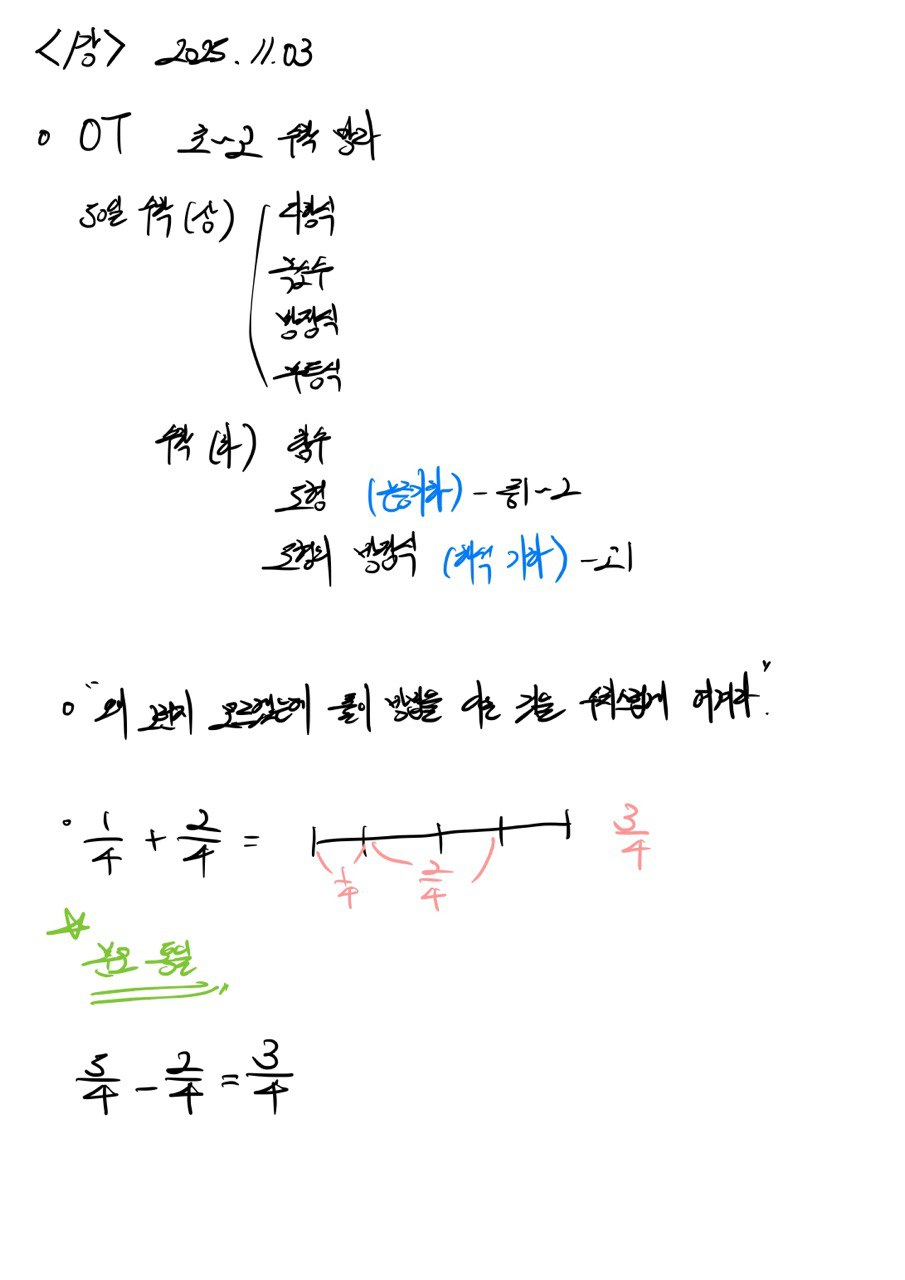 <깡> 2025.11.03
○ OT 초~고 수학 발라
50일 수학(상) 다항식
복소수
방정식
부등식
수학(하) 함수
도형 (논증기하) - 중1~2
도형의 방정식 (해석 기하) - 고1
○ "왜 그런지 모르겠는데 풀이 방법을 아는 것을 수치스럽게 여겨라".
○ 1/4 + 2/4 = 3/4
1/4 2/4
☆
분모 통일
5/4 - 2/4 = 3/4